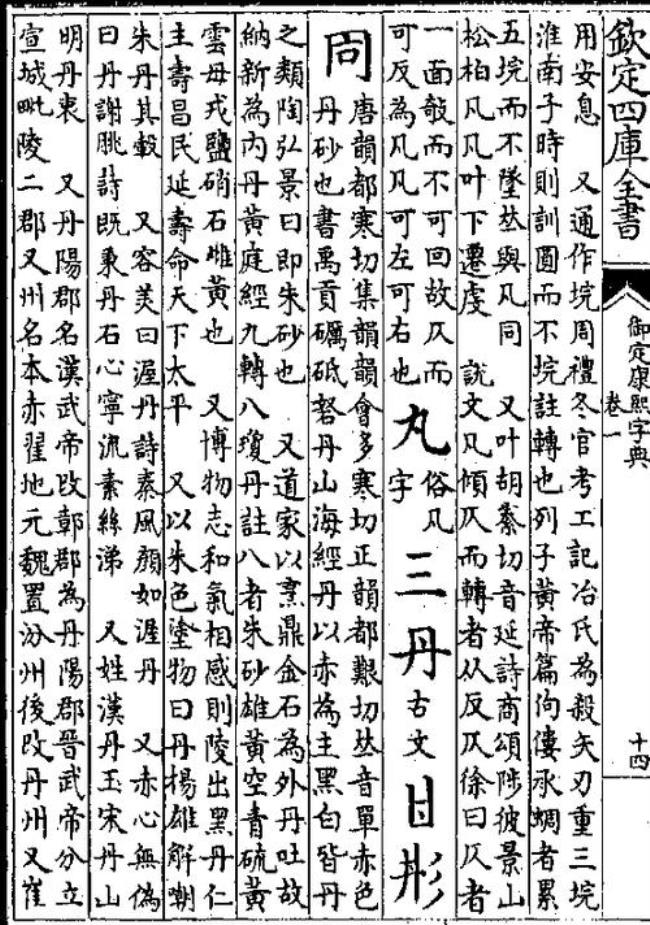 欽定四庫全書
御定康熙字典
卷一
十四
用安息　又通作垸周禮冬官考工記冶氏為殺矢刃重三垸
淮南子時則訓圜而不垸註轉也列子黃帝篇佝僂承蜩者累
五垸而不墜𠀤與凡同　又叶胡縈切音延詩商頌陟彼景山
松柏凡凡叶下遷虔　說文凡傾仄而轉者从反仄徐曰仄者
一面敧而不可回故仄而
可反為凡凡可左可右也
丸 俗凡字
三 丹 古文 彤
唐韻都寒切集韻韻會多寒切正韻都艱切𠀤音單赤色
丹砂也書禹貢礪砥砮丹山海經丹以赤為主黑白皆丹
之類陶弘景曰即朱砂也　又道家以烹鼎金石為外丹吐故
納新為內丹黃庭經九轉八瓊丹註八者朱砂雄黃空青硫黃
雲母戎鹽硝石雌黃也　又博物志和氣相感則陵出黑丹仁
主壽昌民延壽命天下太平　又以朱色塗物曰丹揚雄解嘲
朱丹其轂　又容美曰渥丹詩秦風顏如渥丹　又赤心無偽
曰丹謝朓詩既秉丹石心寧流素絲涕　又姓漢丹玉宋丹山
明丹衷　又丹陽郡名漢武帝改鄣郡為丹陽郡晉武帝分立
宣城毗陵二郡又州名本赤翟地元魏置汾州後改丹州又崔